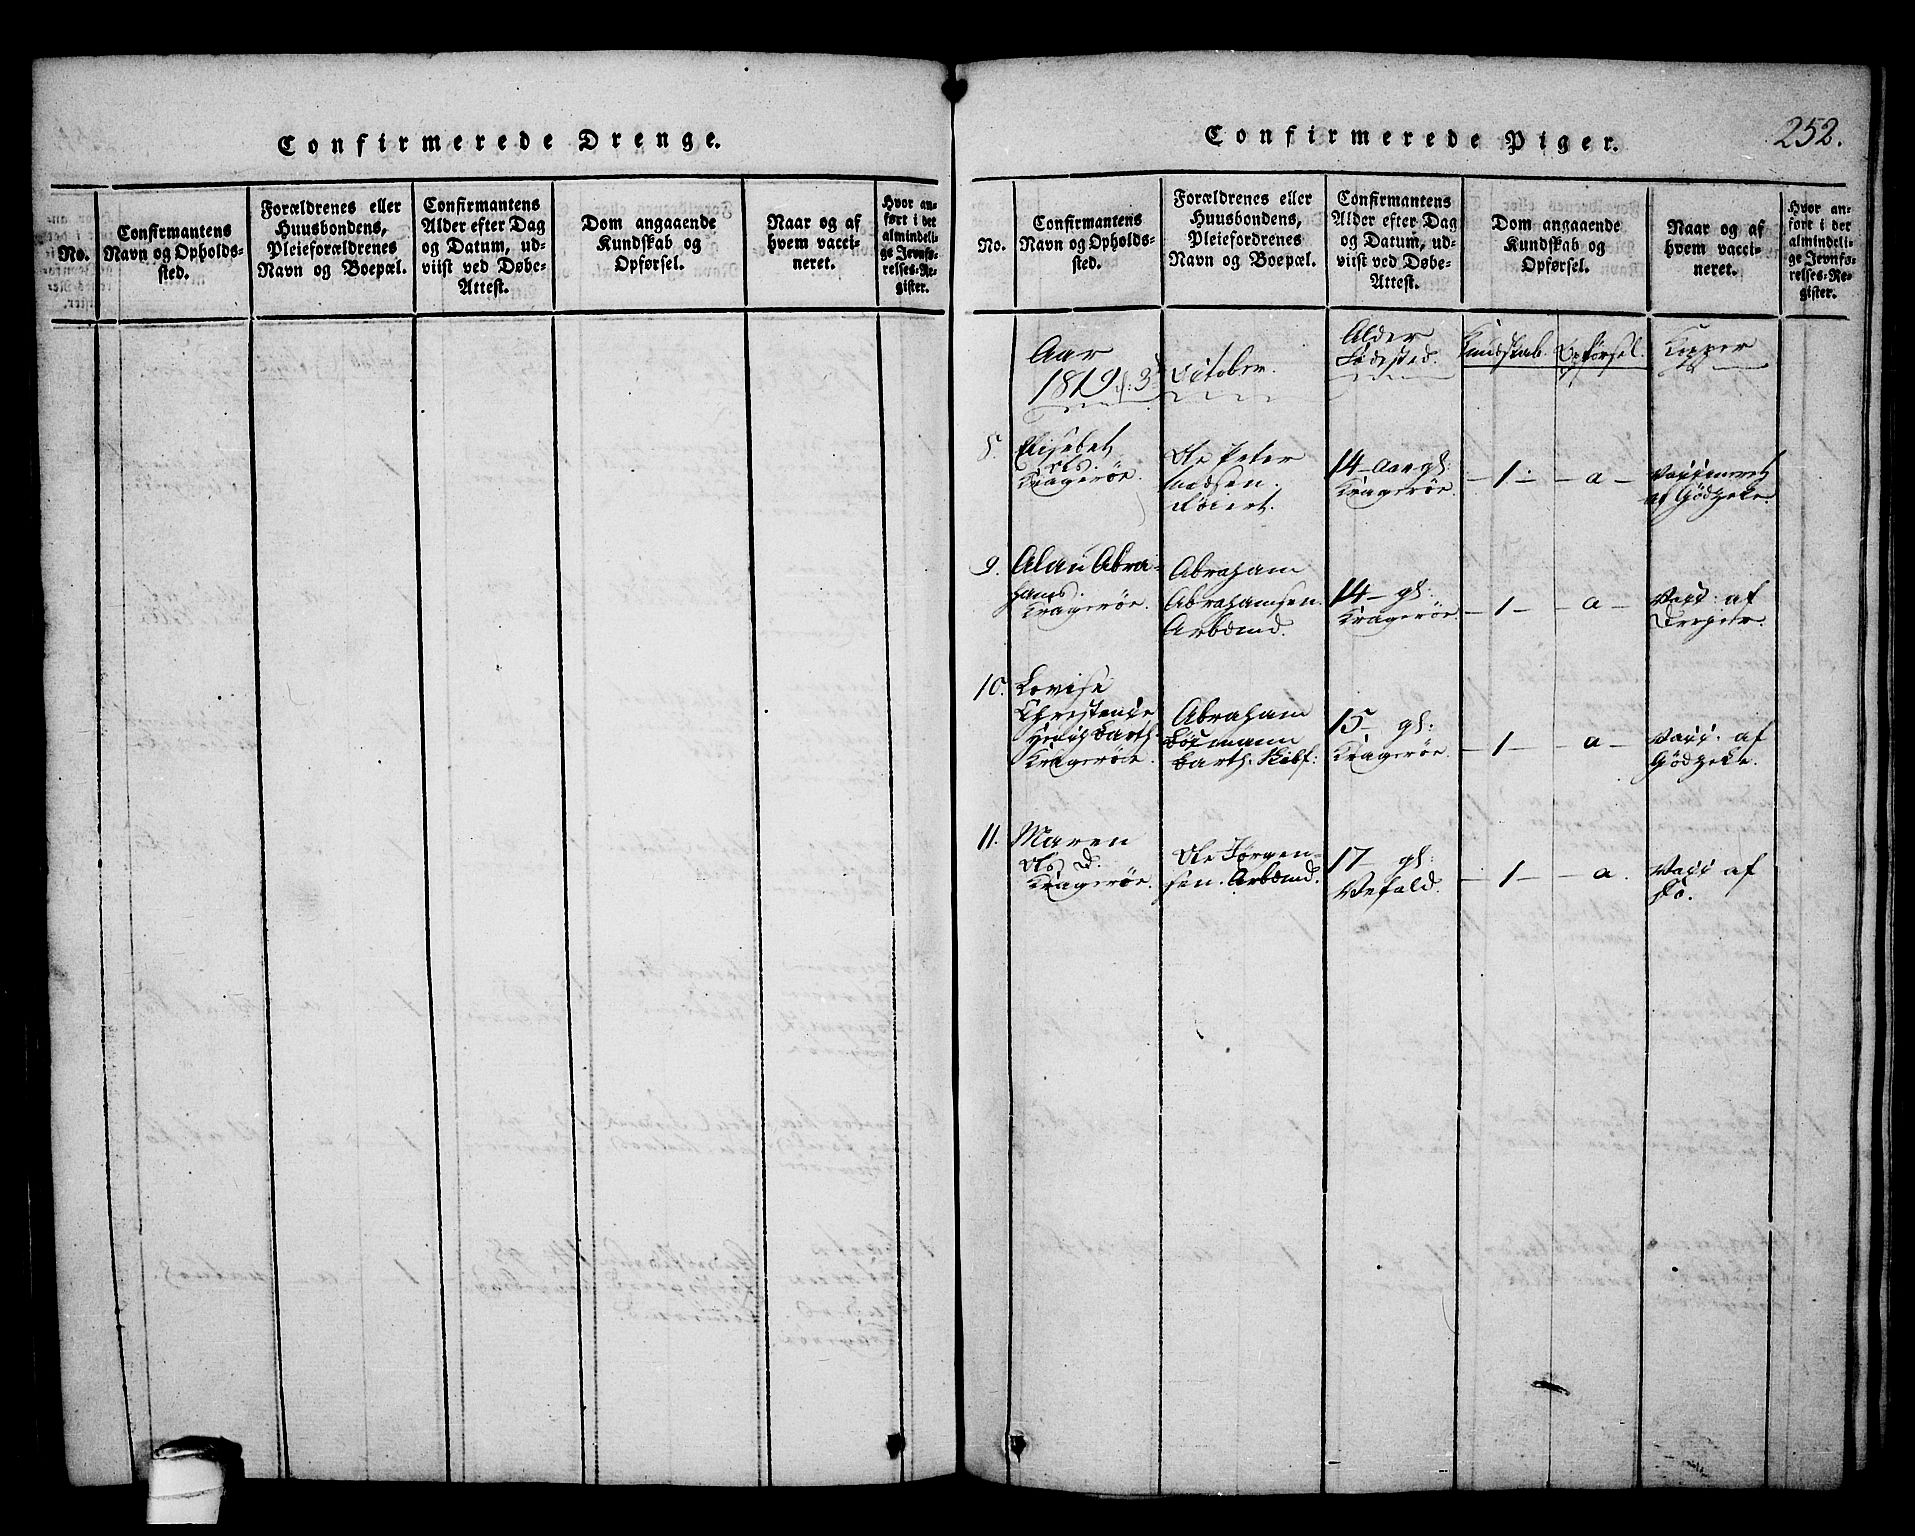 Confirmerede Drenge.
No.
Confirmantens
Navn og Opholds-
sted.
Forældrenes eller
Huusbondens,
Pleieforældrenes
Navn og Boepæl.
Confirmantens
Alder efter Dag
og Datum, ud-
viist ved Døbe-
Attest.
Dom angaaende
Kundskab og
Opførsel.
Naar og af
hvem vacci-
neret.
Hvor an-
ført i det
almindeli-
ge Jevnfø-
relses-Re-
gister.
Confirmerede Piger.
252.
No.
Confirmantens
Navn og Opholds-
sted.
Forældrenes eller
Huusbondens,
Pleiefordrenes
Navn og Boepæl.
Confirmantens
Alder efter Dag
og Datum, ud-
viist ved Døbe-
Attest.
Dom angaaende
Kundskab og
Opførsel.
Naar og af
hvem vacci-
neret.
Hvor an-
ført i det
almindeli-
ge Jevnfø-
relses-Re-
gister.
Aar
1819 d: 3 October.
Alder
Fødested.
Kundskab. Opførsel.
Kopper
8. Elisabet
Ols.
Kragerøe.
Ole Peter
14 - Aar gl:
Kragerøe.
- 1 -
- a -
Vaccineret
af Gödeke.
9. Alau Abra-
hams.
Kragerøe.
Abraham
Abrahamsen.
Arbdmd.
14 - gl:
Kragerøe
- 1 -
- a -
Vacc: af
10. Lovise
Christense
Barth.
Kragerøe.
Abraham
Barth. Skibf:
15 - gl:
Kragerøe.
- 1 -
- a -
Vacc. af
Gödeke.
11. Maren
Ols D.
Kragerøe.
Ole Jörgen-
sen. Arbdmd.
17 - gl:
- 1 -
- a.
Vacc af
do.